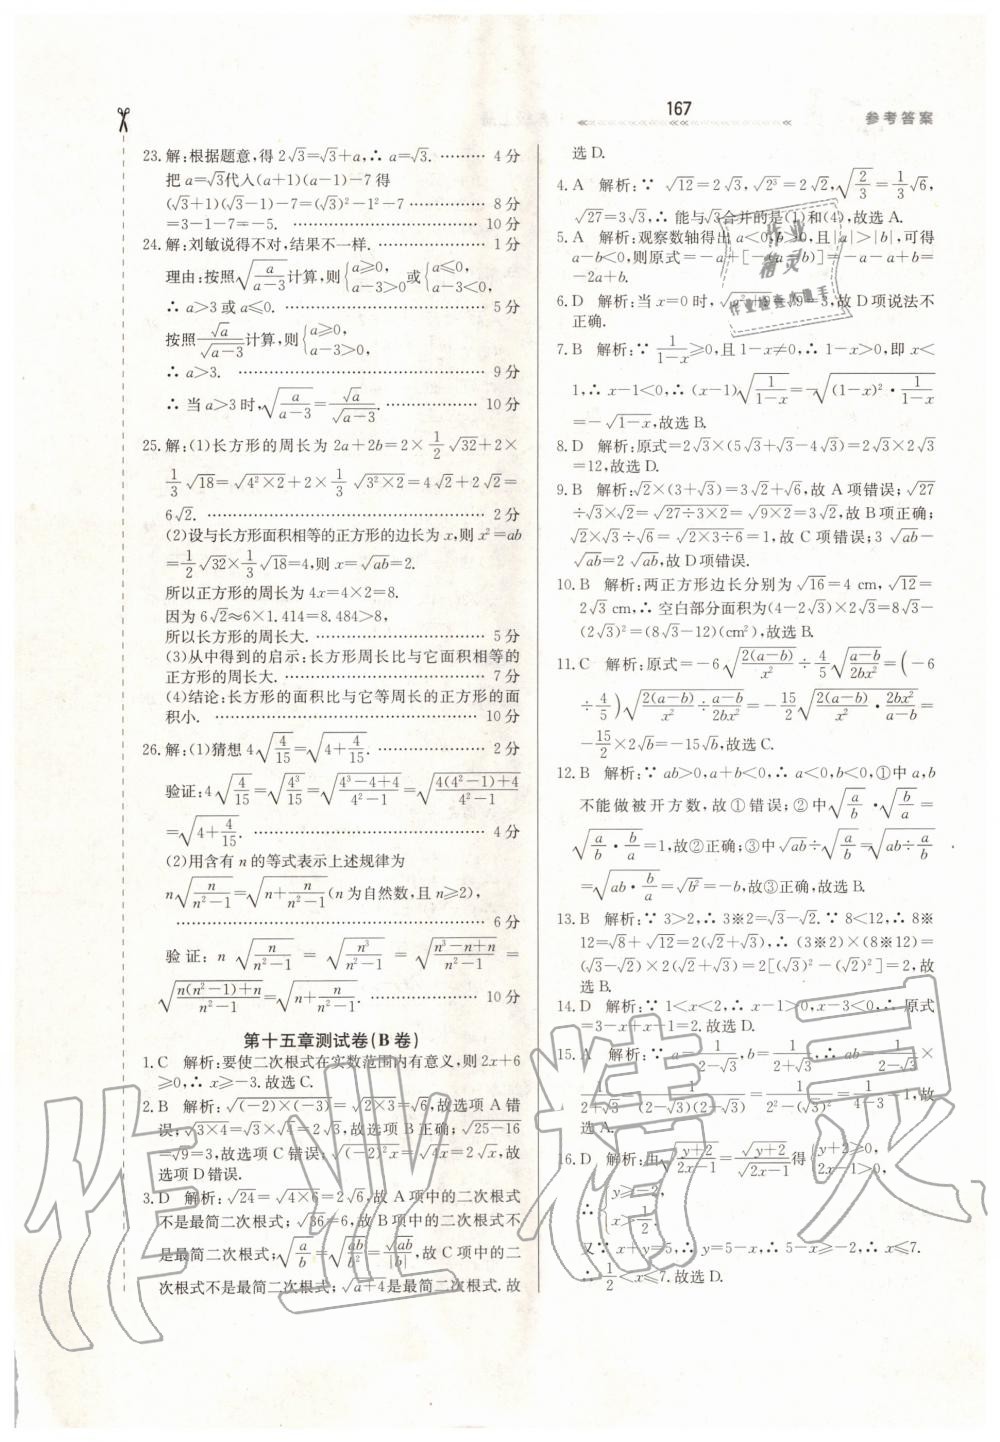 167
参考答案
23. 解:根据题意,得 2√3=√3+a,∴ a=√3. ……… 4 分
把 a=√3代入(a+1)(a−1)−7 得
(√3+1)(√3−1)−7=(√3)²−1²−7 ……………… 8 分
=3−1−7=−5. ……………………………… 10 分
24. 解:刘敏说得不对,结果不一样. ……………… 1 分
理由:按照√(a/(a−3))计算,则{a≥0, a−3>0 或{a≤0, a−3<0,
∴ a>3 或 a≤0. ……………………………… 5 分
按照 √a/√(a−3) 计算,则{a≥0, a−3>0,
∴ a>3. ……………………………………… 9 分
∴ 当 a>3 时,√(a/(a−3))=√a/√(a−3). ……………… 10 分
25. 解:(1)长方形的周长为 2a+2b=2×1/2√32+2×
1/3√18=√(4²×2)+2×1/3√(3²×2)=4√2+2√2=
6√2. ………………………………………… 2 分
(2)设与长方形面积相等的正方形的边长为 x,则 x²=ab
=1/2√32×1/3√18=4,则 x=√ab=2.
所以正方形的周长为 4x=4×2=8.
因为 6√2≈6×1.414=8.484>8,
所以长方形的周长大. ……………………… 5 分
(3)从中得到的启示:长方形周长比与它面积相等的
正方形的周长大. …………………………… 7 分
(4)结论:长方形的面积比与它等周长的正方形的面
积小. ……………………………………… 10 分
26. 解:(1)猜想 4√(4/15)=√(4+4/15). ……………… 2 分
验证:4√(4/15)=√(4³/15)=√((4³−4+4)/(4²−1))=√((4(4²−1)+4)/(4²−1))
=√(4+4/15). ………………………………… 4 分
(2)用含有 n 的等式表示上述规律为
n√(n/(n²−1))=√(n+n/(n²−1))(n 为自然数,且 n≥2),
……………………………………………… 6 分
验证: n √(n/(n²−1)) = √(n³/(n²−1)) = √((n³−n+n)/(n²−1)) =
√((n(n²−1)+n)/(n²−1))=√(n+n/(n²−1)). ……………… 10 分
第十五章测试卷(B 卷)
1. C 解析:要使二次根式在实数范围内有意义,则 2x+6
≥0,∴ x≥−3.故选 C.
2. B 解析:√((−2)×(−3))=√(2×3)=√6,故选项 A 错
误;√(3×4)=√3×√4=2√3,故选项 B 正确;√(25−16)
=√9=3,故选项 C 错误;√((−2)²x)=√4x=2√x,故
选项 D 错误.
3. D 解析:√24=√(4×6)=2√6,故 A 项中的二次根式
不是最简二次根式;√36=6,故 B 项中的二次根式不
是最简二次根式;√(a/b)=√(ab/b²)=√ab/|b|,故 C 项中的二
次根式不是最简二次根式;√(a+4)是最简二次根式. 故
选 D.
4. A 解析:∵ √12=2√3,√(2³)=2√2,√(2/3)=1/3√6,
√27=3√3,∴ 能与√3合并的是(1)和(4),故选 A.
5. A 解析:观察数轴得出 a<0,b>0,且|a|>|b|,可得
a−b<0,则原式=−a+[−(a−b)]−b=−a−a+b−b=
−2a+b.
6. D 解析:当 x=0 时,√(x²+9)=√9=3,故 D 项说法不
正确.
7. B 解析:∵ 1/(1−x)≥0,且 1−x≠0,∴ 1−x>0,即 x<
1,∴ x−1<0,∴ (x−1)√(1/(1−x))=−√((1−x)²·1/(1−x))
=−√(1−x),故选 B.
8. D 解析:原式=2√3×(5√3+√3−4√3)=2√3×2√3
=12,故选 D.
9. B 解析:√2×(3+√3)=3√2+√6,故 A 项错误;√27
÷√3×√2=√(27÷3×2)=√(9×2)=3√2,故 B 项正确;
√2×√3÷√6=√(2×3÷6)=1,故 C 项错误;3√ab−
√ab=2√ab,故 D 项错误.
10. B 解析:两正方形边长分别为√16=4 cm,√12=
2√3 cm,∴ 空白部分面积为(4−2√3)×2√3=8√3−
(2√3)²=(8√3−12)(cm²),故选 B.
11. C 解析:原式=−6√(2(a−b)/x²)÷4/5√((a−b)/2bx²)=(−6
÷4/5)√(2(a−b)/x²÷(a−b)/2bx²)=−15/2√(2(a−b)/x²·2bx²/(a−b))=
−15/2×2√b=−15√b,故选 C.
12. B 解析:∵ ab>0,a+b<0,∴ a<0,b<0,①中 a,b
不能做被开方数,故①错误;②中√(a/b)·√(b/a)=
√(a/b·b/a)=1,故②正确;③中√ab÷√(a/b)=√(ab÷a/b)
=√(ab·b/a)=√b²=−b,故③正确,故选 B.
13. B 解析:∵ 3>2,∴ 3※2=√3−√2. ∵ 8<12,∴ 8※
12=√8+√12=2(√2+√3),∴ (3※2)×(8※12)=
(√3−√2)×2(√2+√3)=2[(√3)²−(√2)²]=2,故
选 B.
14. D 解析:∵ 1<x<2,∴ x−1>0,x−3<0,∴ 原式
=3−x+x−1=2.故选 D.
15. A 解析:∵ a=1/(2−√3),b=1/(2+√3),∴ ab=1/(2−√3)×
1/(2+√3)=1/((2−√3)(2+√3))=1/(2²−(√3)²)=1/(4−3)=1,故
选 A.
16. D 解析:由√((y+2)/(2x−1))=√(y+2)/√(2x−1)得{y+2≥0, 2x−1>0,
∴{y≥−2, x>1/2,
又∵ x+y=5,∴ y=5−x,∴ 5−x≥−2,∴ x≤7.
∴ 1/2<x≤7.故选 D.
作业
精灵
作业检查小助手
作业精灵